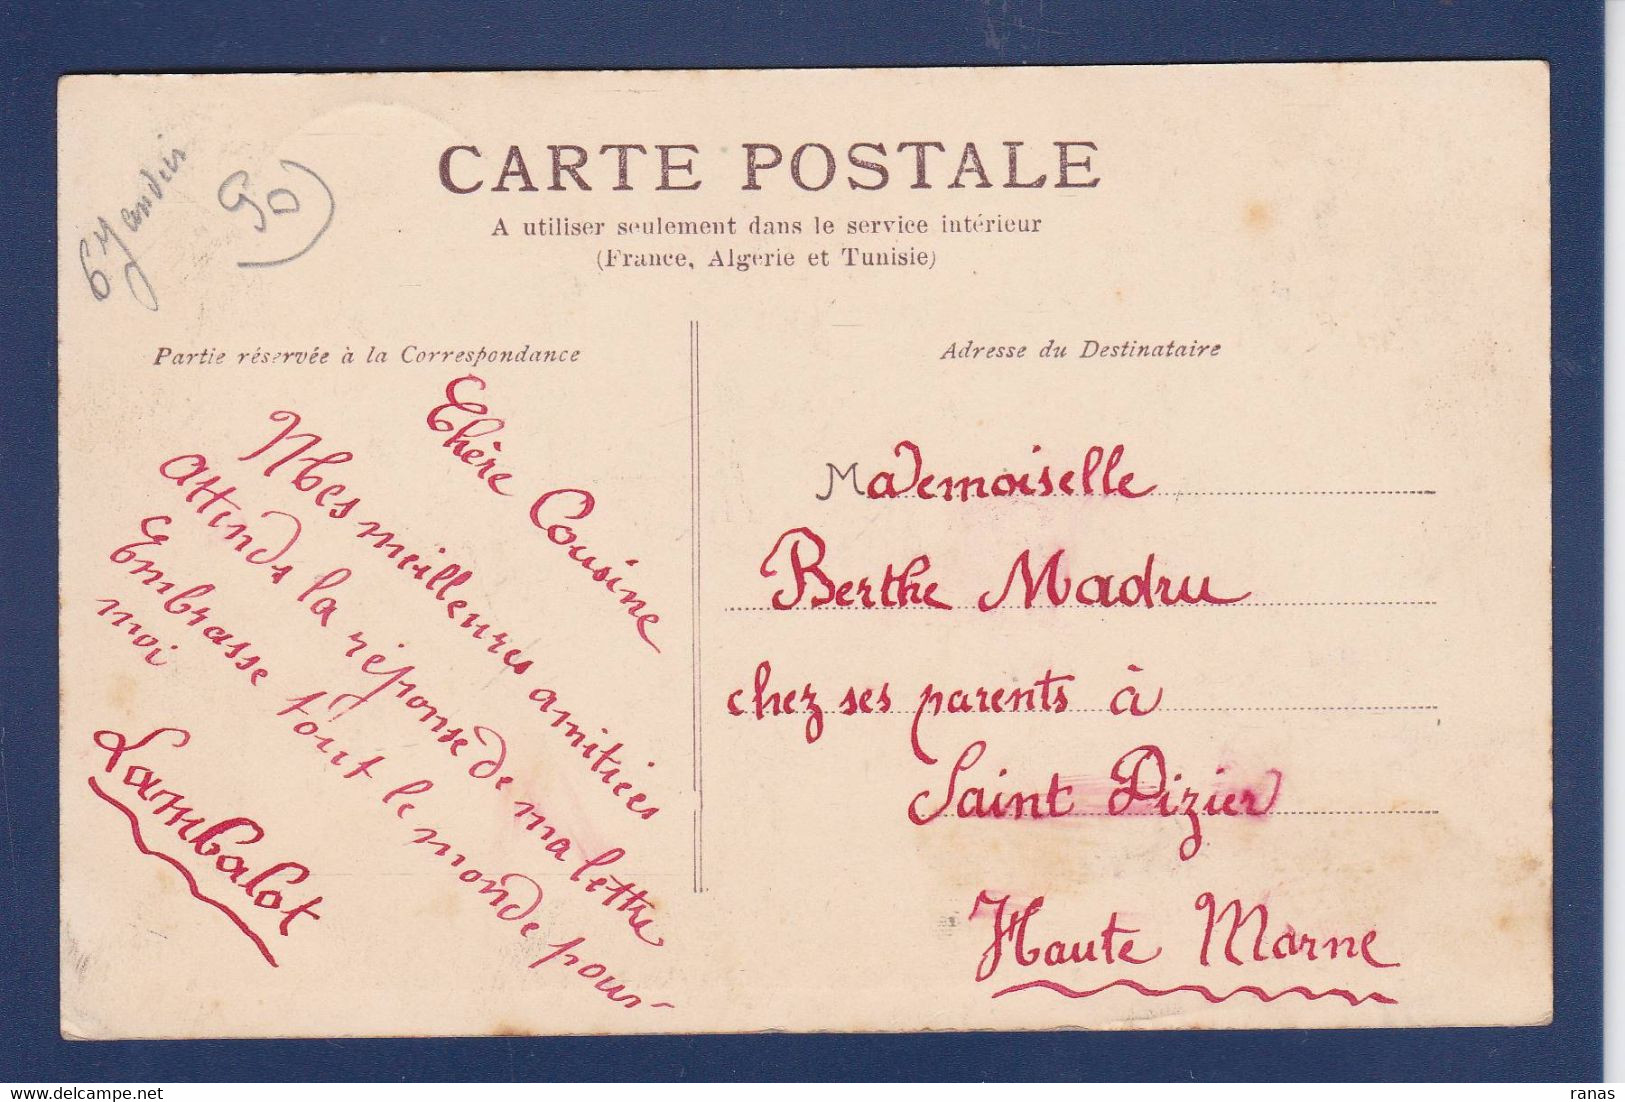 CARTE POSTALE
A utiliser seulement dans le service intérieur
(France, Algerie et Tunisie)
90
Partie réservée à la Correspondance
Chère Cousine
Mes meilleures amitiées
attends la réponse de ma lettre
Embrasse tout le monde pour
moi
Lambalot
Adresse du Destinataire
Mademoiselle
Berthe Madru
chez ses parents à
Saint Dizier
Haute Marne
ranas